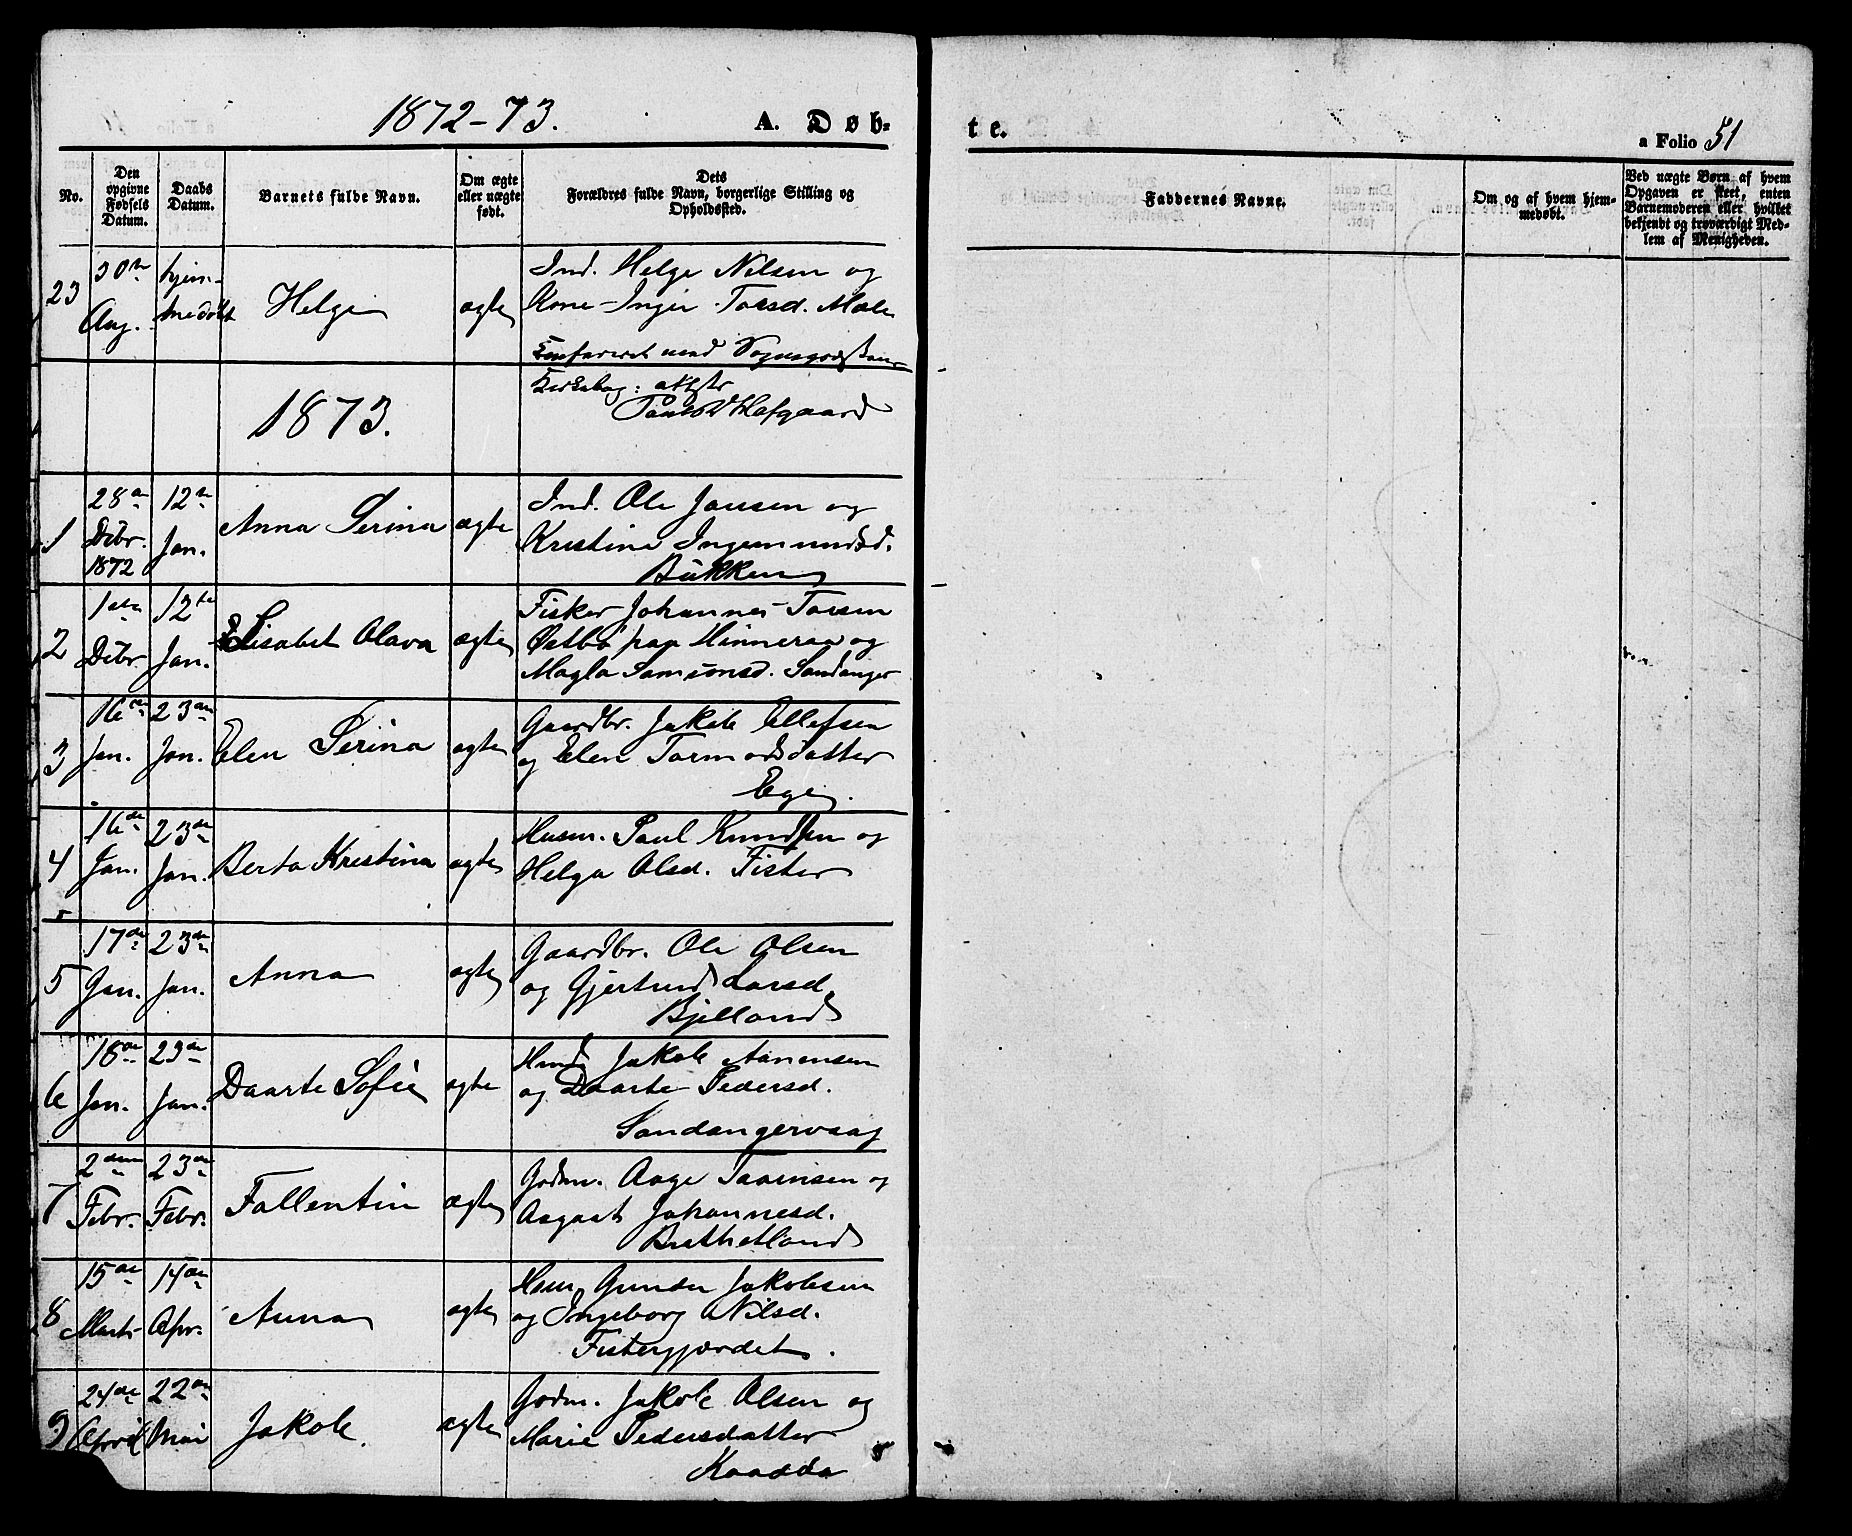 1872-73.
A. Døb-
te.
a Folio 51
No.
Den opgivne Fødsels Datum.
Daabs Datum.
Barnets fulde Navn.
Om ægte eller uægte født.
Dets Forældres fulde Navn, borgerlige Stilling og Opholdssted.
Faddernes Navne.
Om og af hvem hjem-
medøbt.
Ved uægte Børn af hvem
Opgaven er skeet, enten
Barnemoderen eller hvilket
bekjendt og troværdigt Med-
lem af Menigheden.
23
30te Aug.
hjem-
medøbt
Helge
ægte
Ind. Helge Nilsen og
Kone Inger Torsd. Mæle
Konfereret med Sognepræstens
Kirkebog: attester
Hafgaard
1873.
1
28de Decbr. 1872
12te Jan.
Anna Serina
ægte
Ind. Ole Jansen og
Kristine Ingemundsd.
Bukken
2
1ste Decbr.
12te Jan.
Elisabet Olava
ægte
Fisker Johannes Torsen
Østbø paa Hinneraa og
Magla Samsonsd. Sandanger
3
16de Jan.
23de Jan.
Elen Serina
ægte
Gaardbr. Jakob Ellefsen
og Elen Tormodsdatter
Ege.
4
16de Jan.
23de Jan.
Berta Kristina
ægte
Husm. Paul Knudsen og
Helga Olsd. Fister
5
17de Jan.
23de Jan.
Anna
ægte
Gaardbr. Ole Olsen
og Gjertrud Larsd.
Bjelland
6
18de Jan.
23de Jan.
Daarte Sofie
ægte
Jakob Aanensen
og Daarte Pedersd.
Sandangervaag
7
2den Febr.
23de Febr.
Fallentin
ægte
Gdm. Aage Taarinsen og
Aagaat Johannesd.
8
15de Marts
14de Apr.
Anna
ægte
Hsm. Gunder Jakobsen
og Ingeborg Nilsd.
Fistergjærdet.
9
24de April
22de Mai
Jakob.
ægte
Gdm. Jakob Olsen og
Marie Pedersdatter
Kaadda